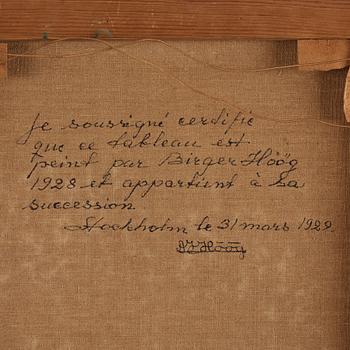 Je soussigné certifie
que ce tableau est
peint par Birger Höög
1928 et appartint à sa
succession.
Stockholm le 31 mars 1929.
Höög